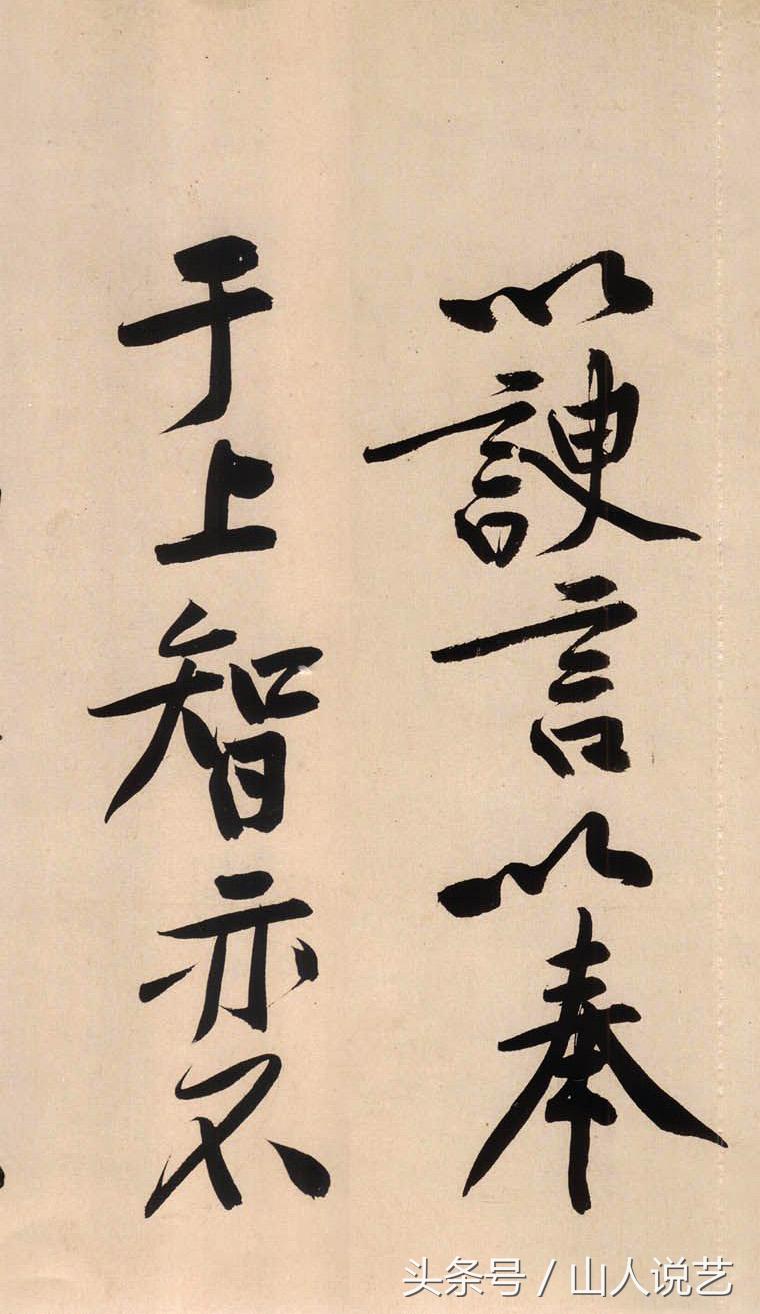 以諛言以奉
于上智亦不
头条号 / 山人说艺